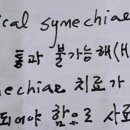 ical symechiae
통과 불가능해(H
mechiae 치료가
되어야 함으로 사료